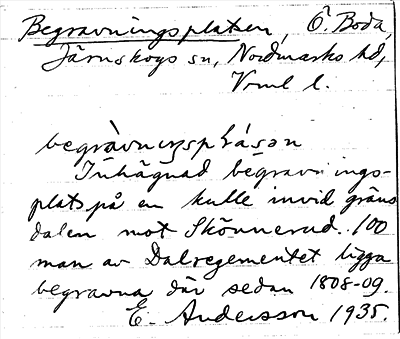 Begravningsplatsen, Ö. Boda,
Järnskogs sn, Nordmarks hd,
Vrml l.
begràvnıŋsplásən
Inhägnad begravnings-
plats på en kulle invid gräns
dalen mot Skönnerud. 100
man av Dalregementet ligga
begravna där sedan 1808-09.
E. Andersson 1935.